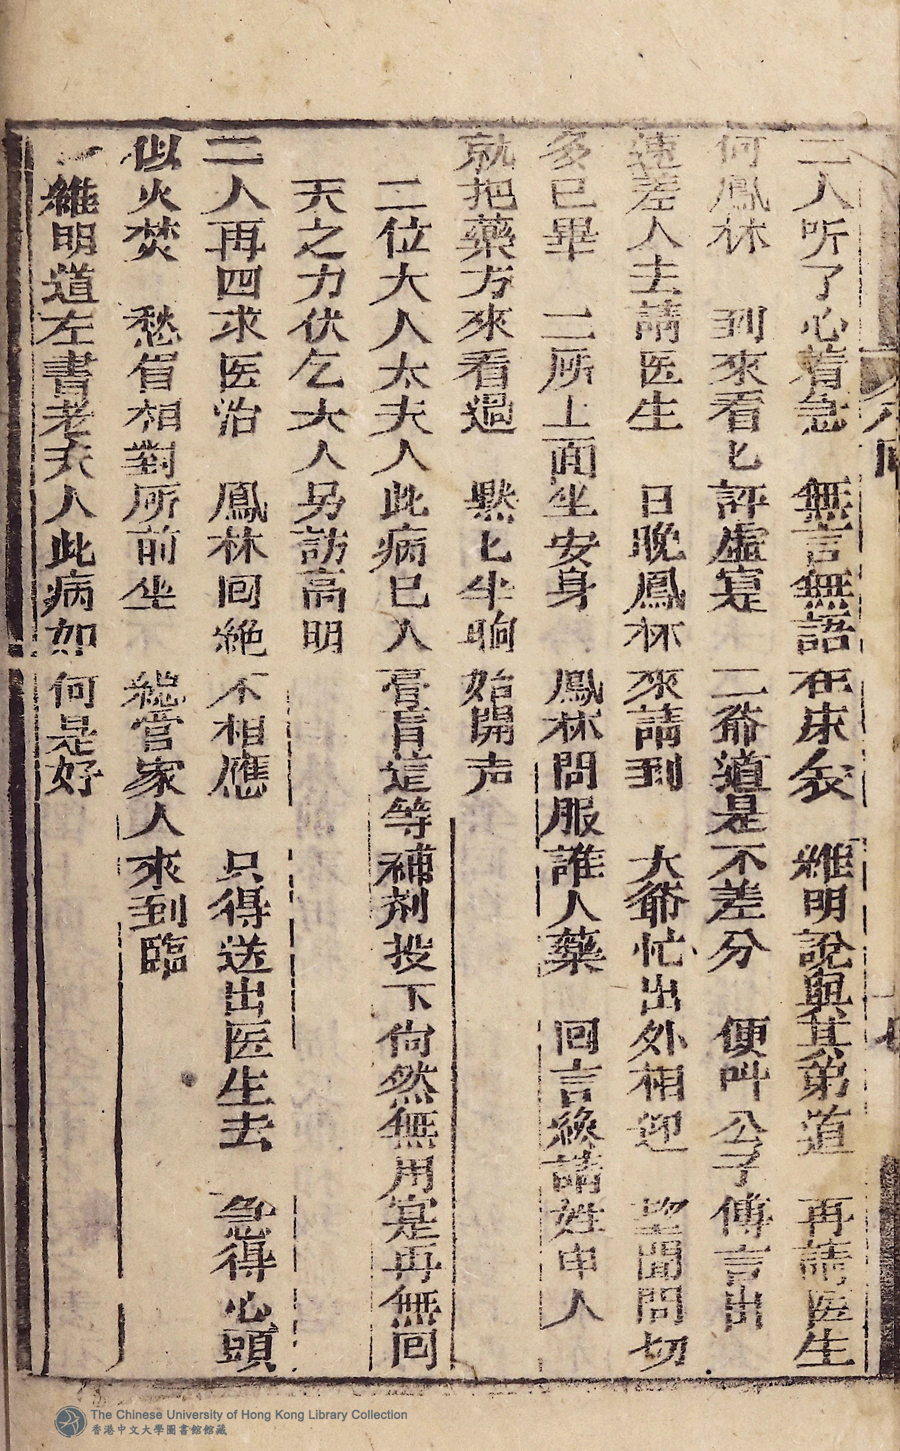 二人听了心着急　無言無語在床衾　雖明說與其弟道　再請医生
何鳳林　到來看匕評虛寔　二爺道是不差分　便叫公子傳言出
速差人去請医生　日晚鳳林來請到　大爺忙出外相迎　望聞問切
多已畢　二所上面坐安身　鳳林問服誰人藥　回言緣請姓申人
就把藥方來看過　默匕坐晌始開声
二位大人太夫人此病已入膏肓這等補剂投下尙然無用寔再無回
天之力伏乞大人另訪高明
二人再四求医治　鳳林回絕不相應　只得送出医生去　急得心頭
似火焚　愁眉相對所前坐　總管家人來到臨
雖明道左書老夫人此病如何是好
The Chinese University of Hong Kong Library Collection
香港中文大學圖書館館藏